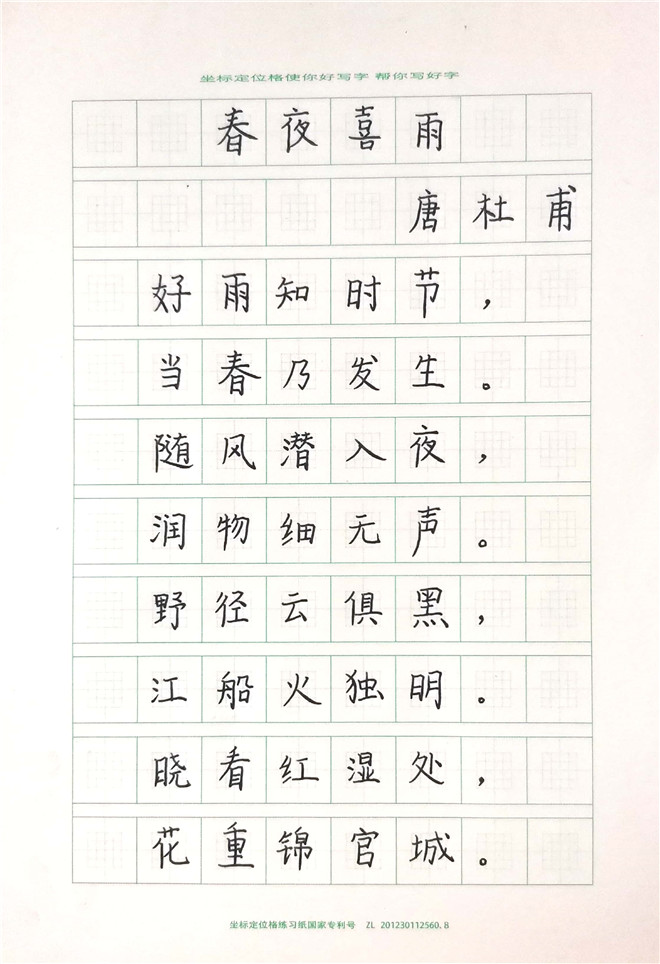 坐标定位格使你好写字 帮你写好字
春夜喜雨
唐杜甫
好雨知时节，
当春乃发生。
随风潜入夜，
润物细无声。
野径云俱黑，
江船火独明。
晓看红湿处，
花重锦官城。
坐标定位格练习纸国家专利号 ZL 201230112560.8